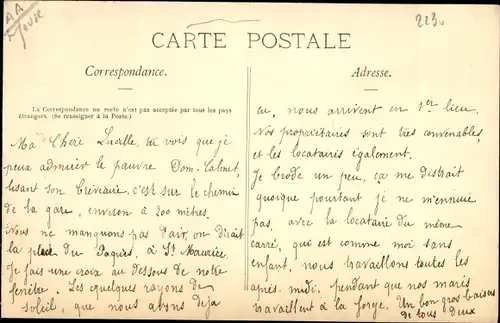 AA
223
CARTE POSTALE
Correspondance.
Adresse.
La Correspondance au recto n'est pas acceptée par tous les pays
étrangers. (Se renseigner à la Poste.)
Ma Chère Lucette, tu vois que je
peux admirer le pauvre Dom. Calmet,
lisant son bréviaire. c'est sur le chemin
de la gare, environ à 200 mètres.
Nous ne manquons pas d'air, on dirait
la place du Paquis, à St Maurice.
Je fais une croix au dessous de notre
fenêtre. Les quelques rayons de
soleil, que nous avons déja
eu, nous arrivent en 1er lieu.
Nos propriétaires sont très convenables,
et les locataires également.
Je brode un peu, ça me distrait
quoique pourtant je ne m'ennuie
pas. avec la locataire du même
carré, qui est comme moi sans
enfant, nous travaillons toutes les
après-midi. pendant que nos maris
travaillent à la forge. Un bon gros baiser
de tous deux